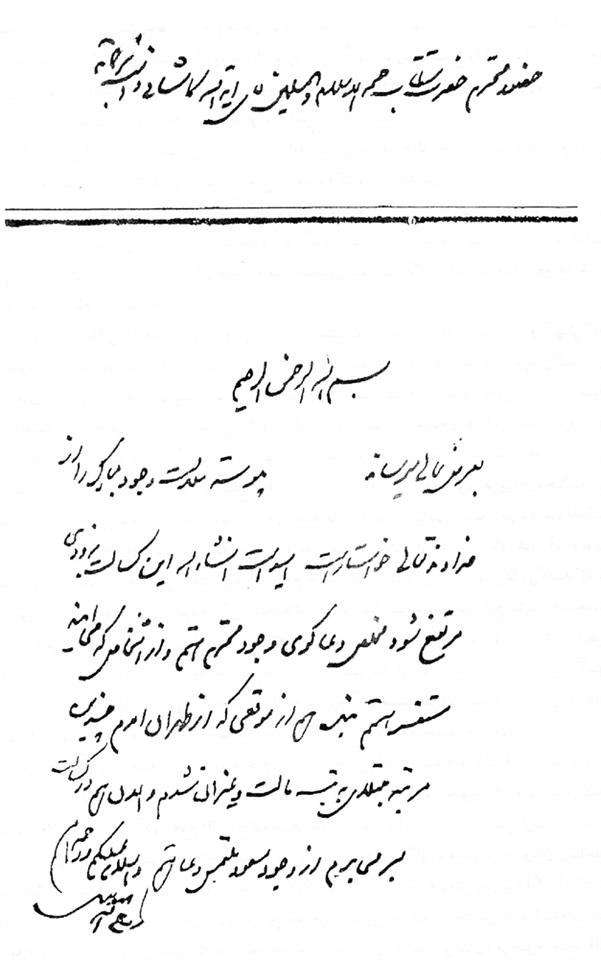 حضور محترم حضرت مستطاب حجة الاسلام والمسلمین آقای آیة الله کاشانی دامت برکاته
بسم الله الرحمن الرحیم
بعرض عالی میرساند پیوسته سلامت وجود مبارک را از
خداوند تعالی خواستار است امید است انشاء الله این کسالت بزودی
مرتفع شود مخلص دعاگوی وجود محترم هستم و از اشخاصی که می‌آیند
مستفسر هستم بنده هم از موقعی که از طهران آمدم چندین
مرتبه مبتلای به تب مالت و غیرآن شدم و الان هم در کسالت
بسر می‌برم از وجود مسعود ملتمس دعا هستم والسلام علیکم ورحمة الله